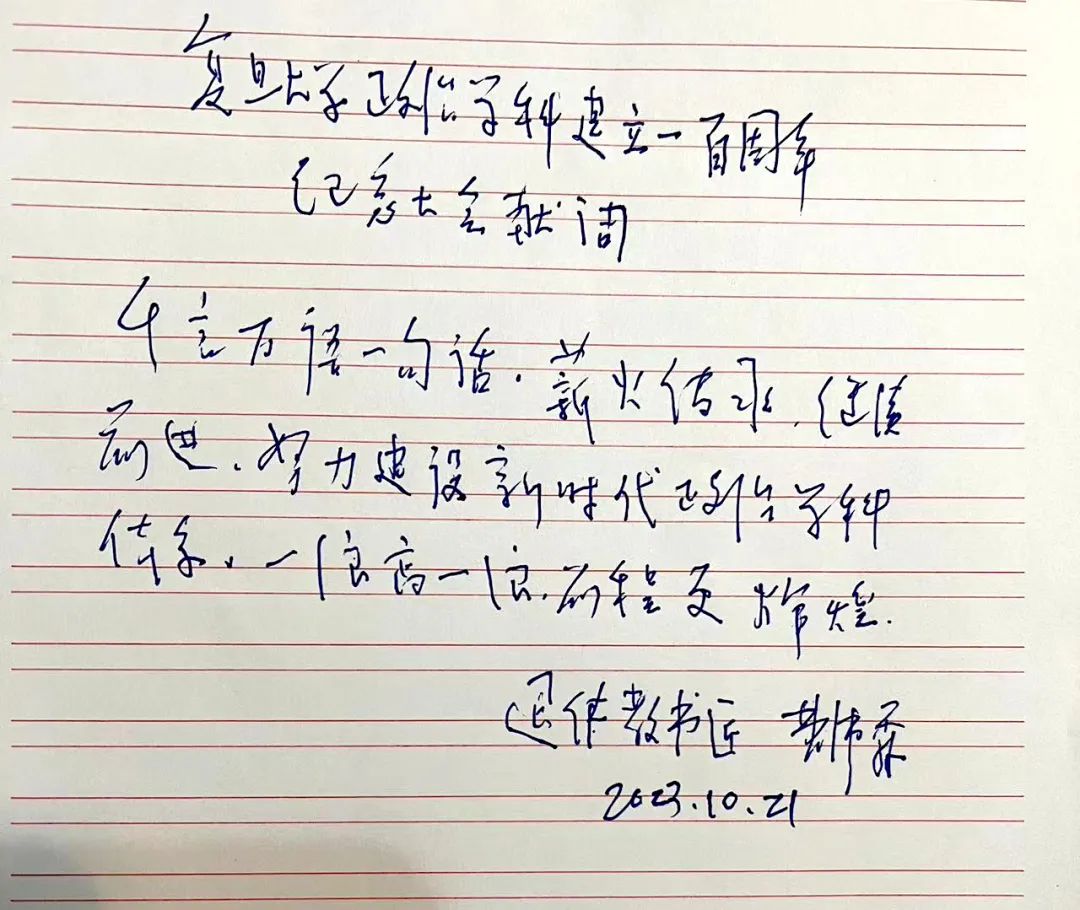 复旦大学政治学科建立一百周年
纪念大会献词
千言万语一句话，薪火传承，继续
前进，努力建设新时代政治学科
体系，一浪高一浪，前程更辉煌.
退休教书匠 曹沛霖
2023.10.21